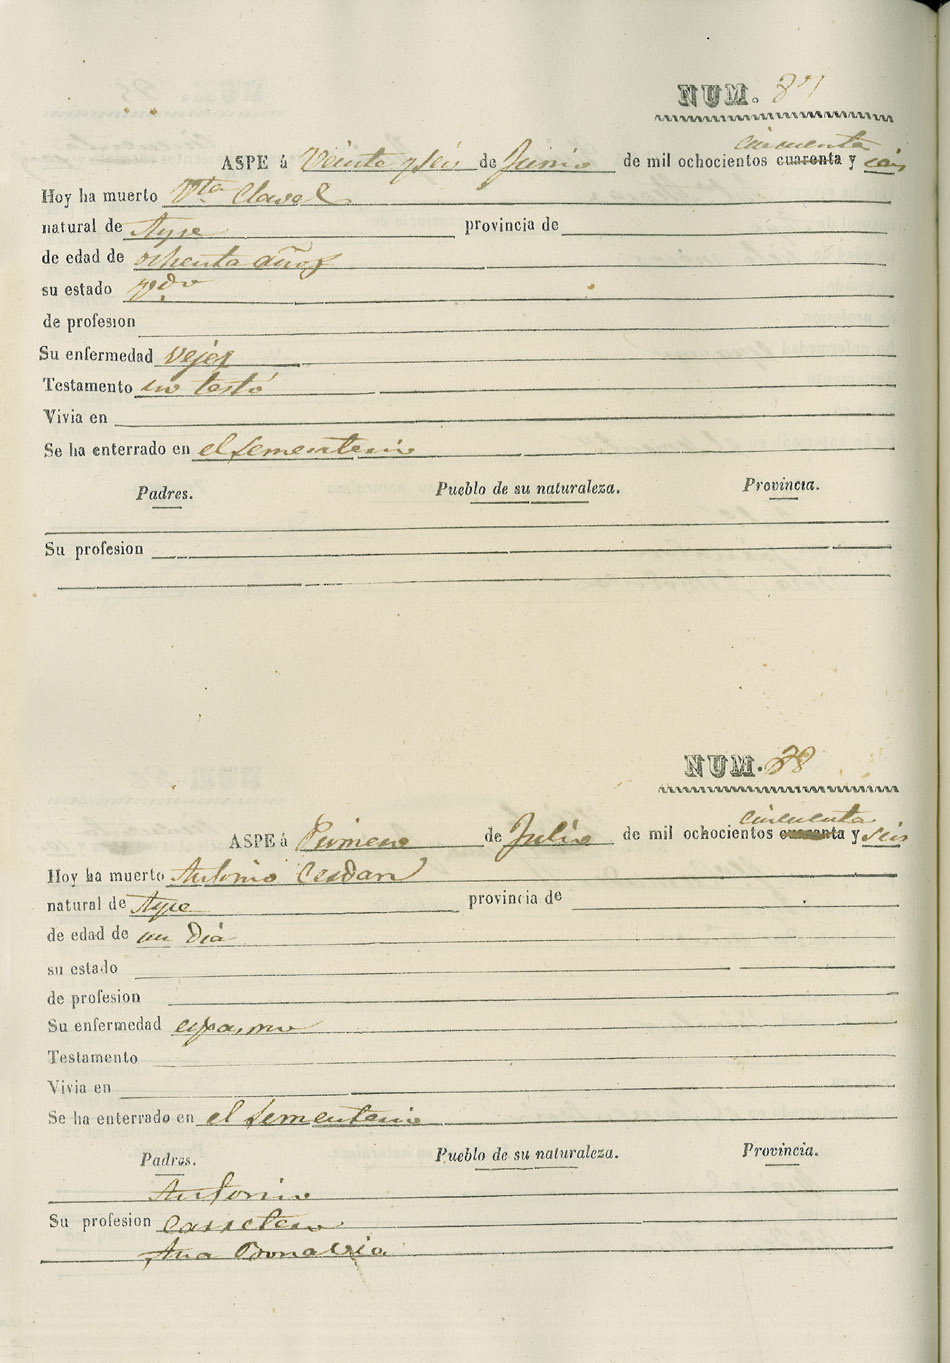 NUM. 87
cincuenta
ASPE á Veinte y seis de Junio de mil ochocientos cuarenta y seis
Hoy ha muerto Vta Clavel
natural de Aspe provincia de
de edad de ochenta años
su estado
de profesion
Su enfermedad vejez
Testamento no testó
Vivia en
Se ha enterrado en el sementerio
Padres. Pueblo de su naturaleza. Provincia.
Su profesion
NUM. 88
cincuenta
ASPE á Primero de Julio de mil ochocientos cuarenta y seis
Hoy ha muerto Antonio Cerdan
natural de Aspe provincia de
de edad de un dia
su estado
de profesion
Su enfermedad espasmo
Testamento
Vivia en
Se ha enterrado en el sementerio
Padres. Pueblo de su naturaleza. Provincia.
Antonio
Su profesion carretero
Ana Bonavia